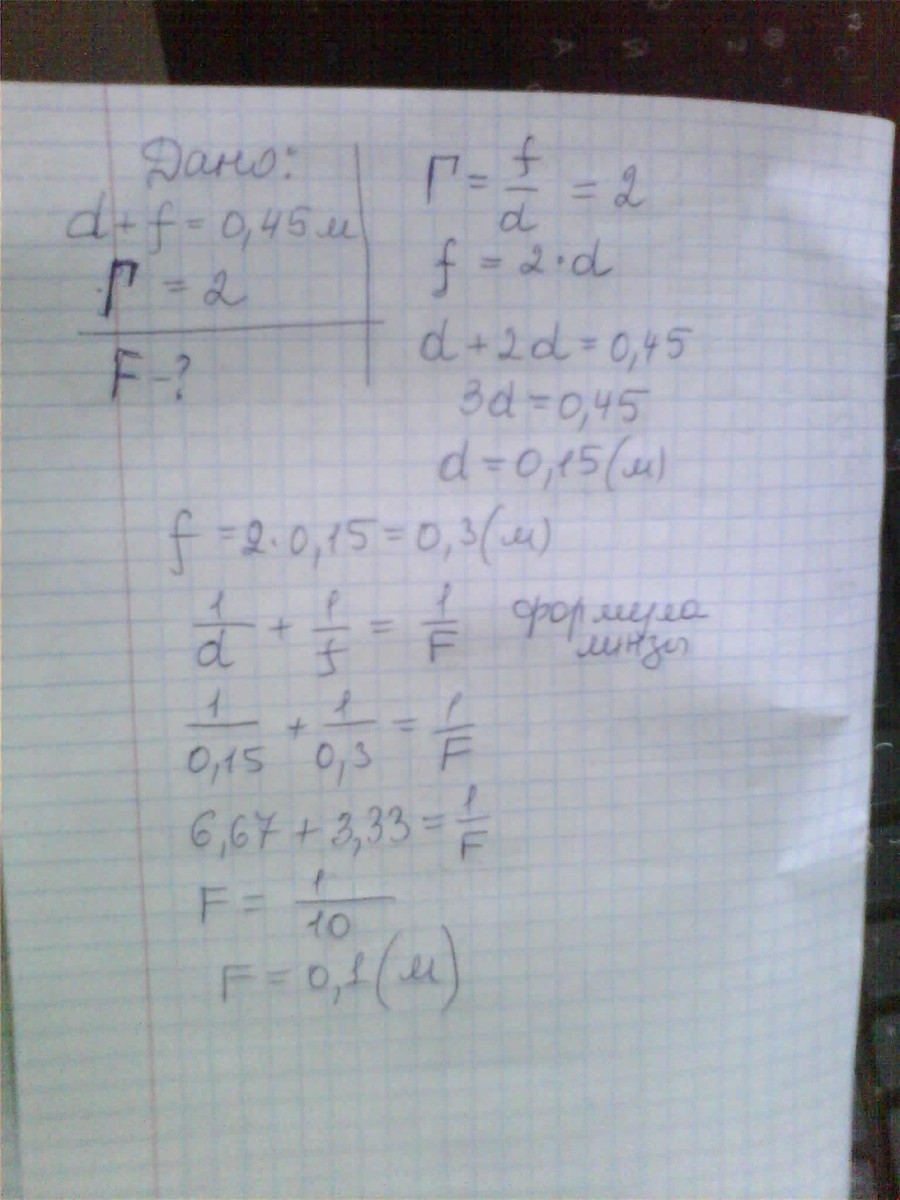 Дано:
d + f = 0,45 м
Г = 2
F - ?
Г = f/d = 2
f = 2·d
d + 2d = 0,45
3d = 0,45
d = 0,15 (м)
f = 2·0,15 = 0,3 (м)
1/d + 1/f = 1/F формула линзы
1/0,15 + 1/0,3 = 1/F
6,67 + 3,33 = 1/F
F = 1/10
F = 0,1 (м)